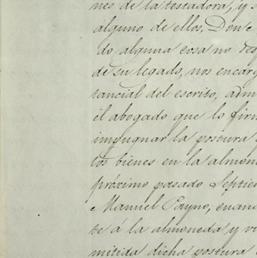 nes de la testadora, y s
alguno de ellos. Don
do alguna cosa no res
de su legado, nos encar
tancial del escrito, adm
el abogado que lo fir
impugnar la postura
tos bienes en la almon
próximo pasado Septie
e Manuel Payno, cuan
te á la almoneda y vi
mitida dicha postura